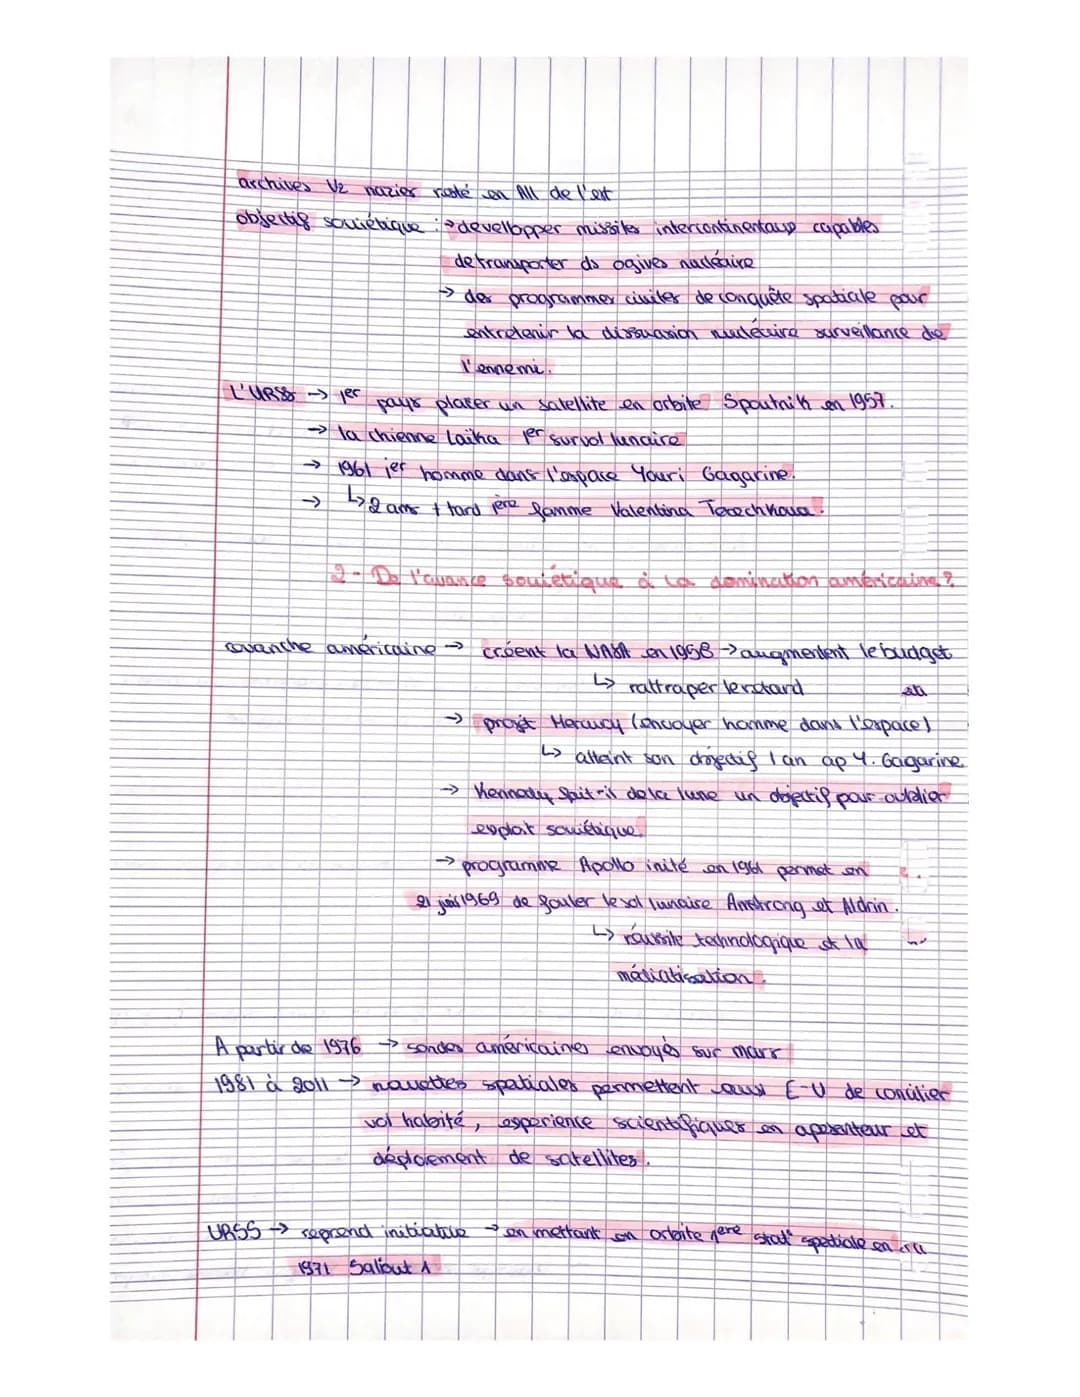 archives V2 nazies resté en All de l'est
objectif soviétique : → devellopper missiles intercontinentaux capables
de transporter ds ogives nucléaire
→ des programmes civiles de conquête spatiale pour
entretenir la dissuasion nucléaire surveillance de
l'ennemi.
L'URSS → 1er pays placer un satellite en orbite Spoutnik en 1957.
→ la chienne Laïka 1er survol lunaire
→ 1961 1er homme dans l'espace Youri Gagarine.
→ ↳ 2 ans + tard 1ère femme Valentina Terechkova.
2 - De l'avance soviétique à la domination américaine ?
revanche américaine → créent la NASA en 1958 → augmentent le budget
↳ rattraper le retard
→ projet Mercury (envoyer homme dans l'espace)
↳ atteint son objectif 1 an ap Y. Gagarine
→ Kennedy fait-il de la lune un objectif pour oublier
exploit soviétique.
→ programme Apollo inité en 1961 permet en
21 1969 de fouler le sol lunaire Amstrong et Aldrin.
↳ réussite technologique et la
médiatisation.
A partir de 1976 → sondes américaines envoyés sur mars
1981 à 2011 → navettes spatiales permettent aux E-U de concilier
vol habité, experience scientifiques en apesenteur et
déploiement de satellites.
URSS → reprend initiative → en mettant en orbite 1ere stat° spatiale en
1971 Saliout 1